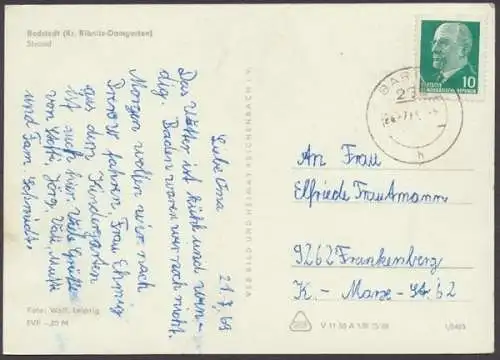 Bodstedt (Kr. Ribnitz-Damgarten)
Strand
21.7.69
Liebe Oma
Das Wetter ist kühl und win-
dig. Baden waren wir noch nicht.
Morgen wollen wir nach
Prerow fahren. Frau Ehmig
aus dem Kindergarten
ist auch hier. Viele Grüße
von Steffi, Jörg, Vati, Mutti
und Fam. Schmidt.
Foto: Wolf, Leipzig
EVP –,20 M
VEB BILD UND HEIMAT REICHENBACH I. V.
V 11 50 A 1/B
DEUTSCHE
DEMOKRATISCHE REPUBLIK
10
BAR
h
An Frau
Elfriede Trautmann
9262 Frankenberg
K.-Marx-Str. 62